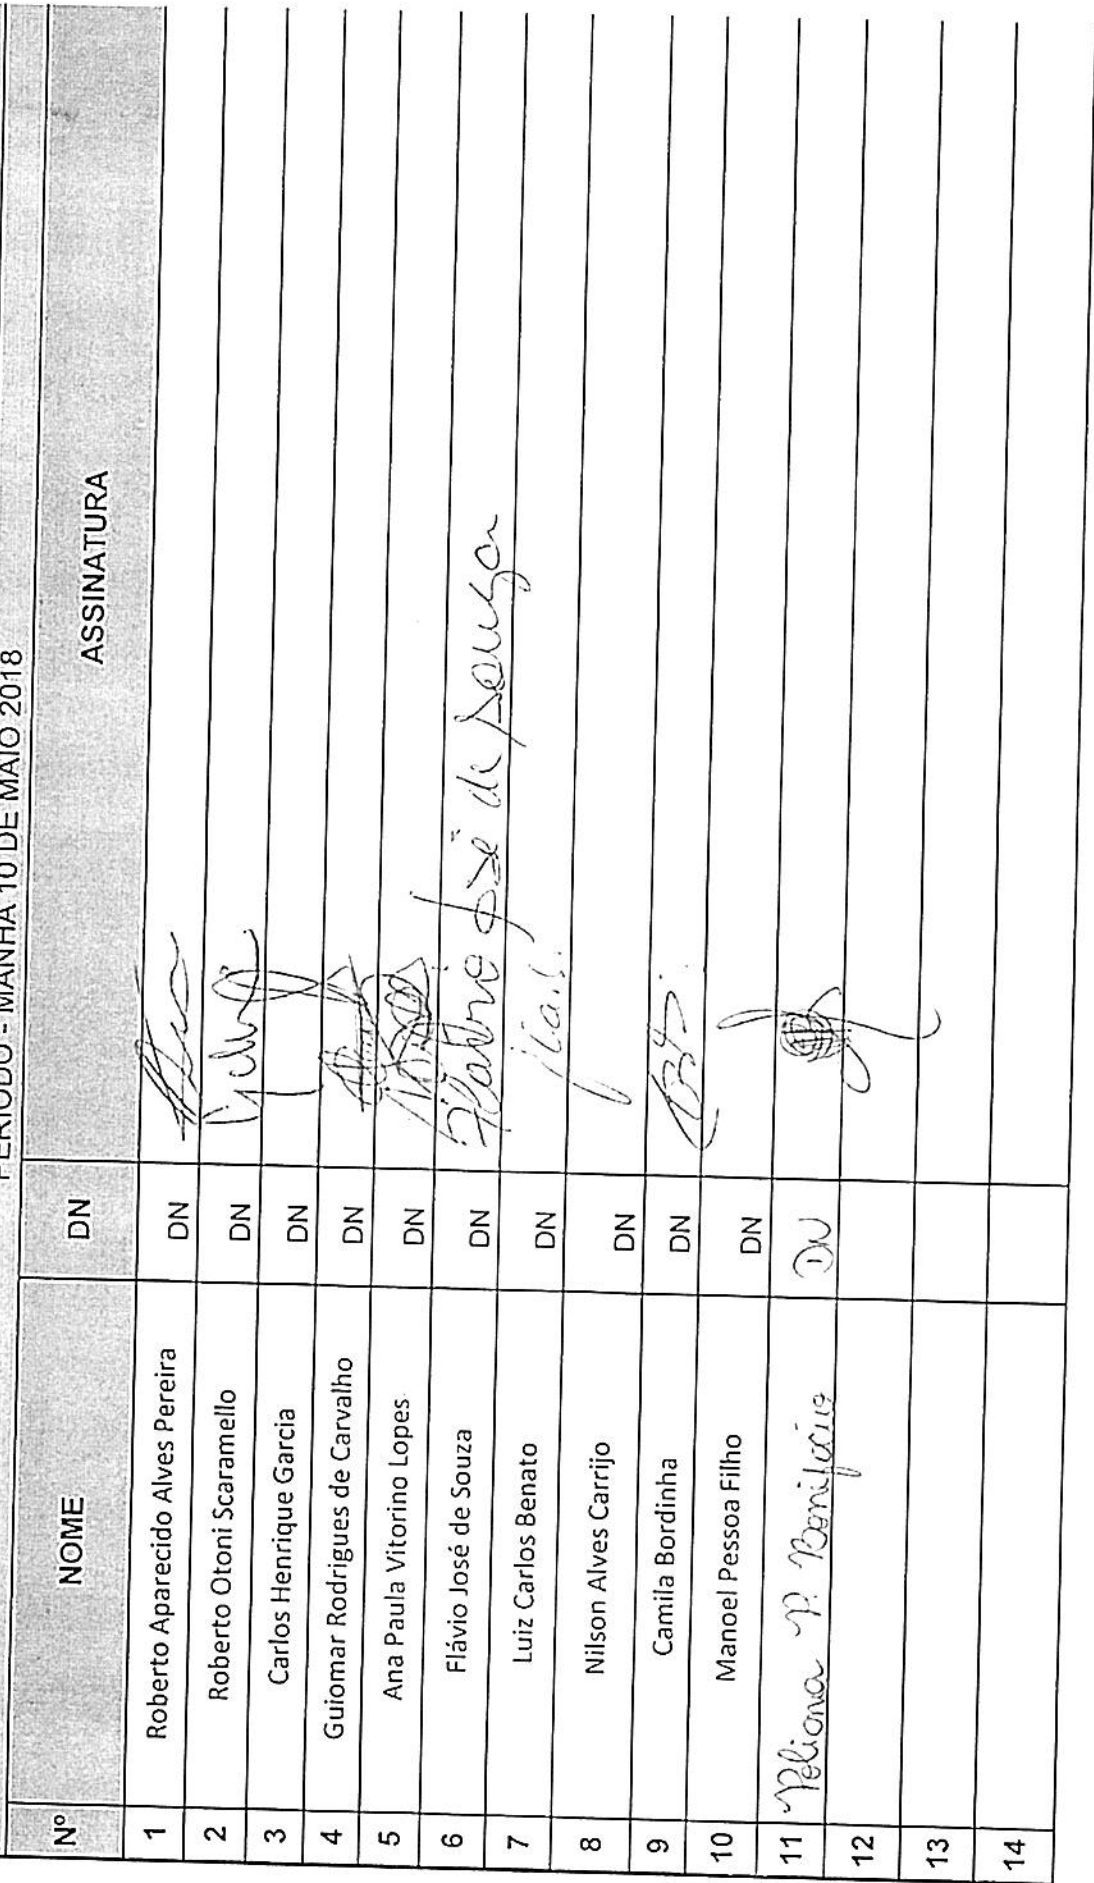 PERÍODO - MANHÃ 10 DE MAIO 2018
Nº NOME DN ASSINATURA
1 Roberto Aparecido Alves Pereira DN
2 Roberto Otoni Scaramello DN
3 Carlos Henrique Garcia DN
4 Guiomar Rodrigues de Carvalho DN
5 Ana Paula Vitorino Lopes DN
6 Flávio José de Souza DN Flávio José de Souza
7 Luiz Carlos Benato DN
8 Nilson Alves Carrijo DN
9 Camila Bordinha DN
10 Manoel Pessoa Filho DN
11 Poliana P. Bonifácio DN
12
13
14